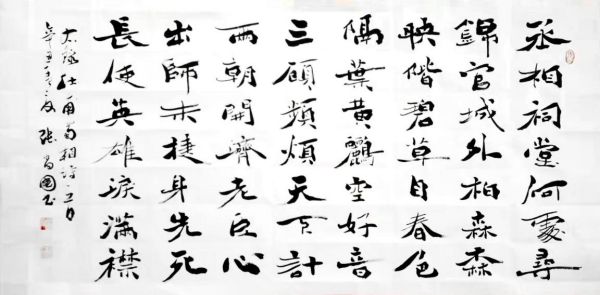 丞相祠堂何處尋
錦官城外柏森森
映階碧草自春色
隔葉黄鸝空好音
三顧頻煩天下計
兩朝開濟老臣心
出師未捷身先死
長使英雄淚滿襟
大唐杜甫蜀相詩
辛丑 張昌國書